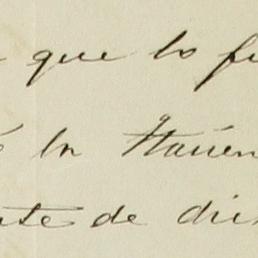 que lo fu
é la Hacien
nte de dic